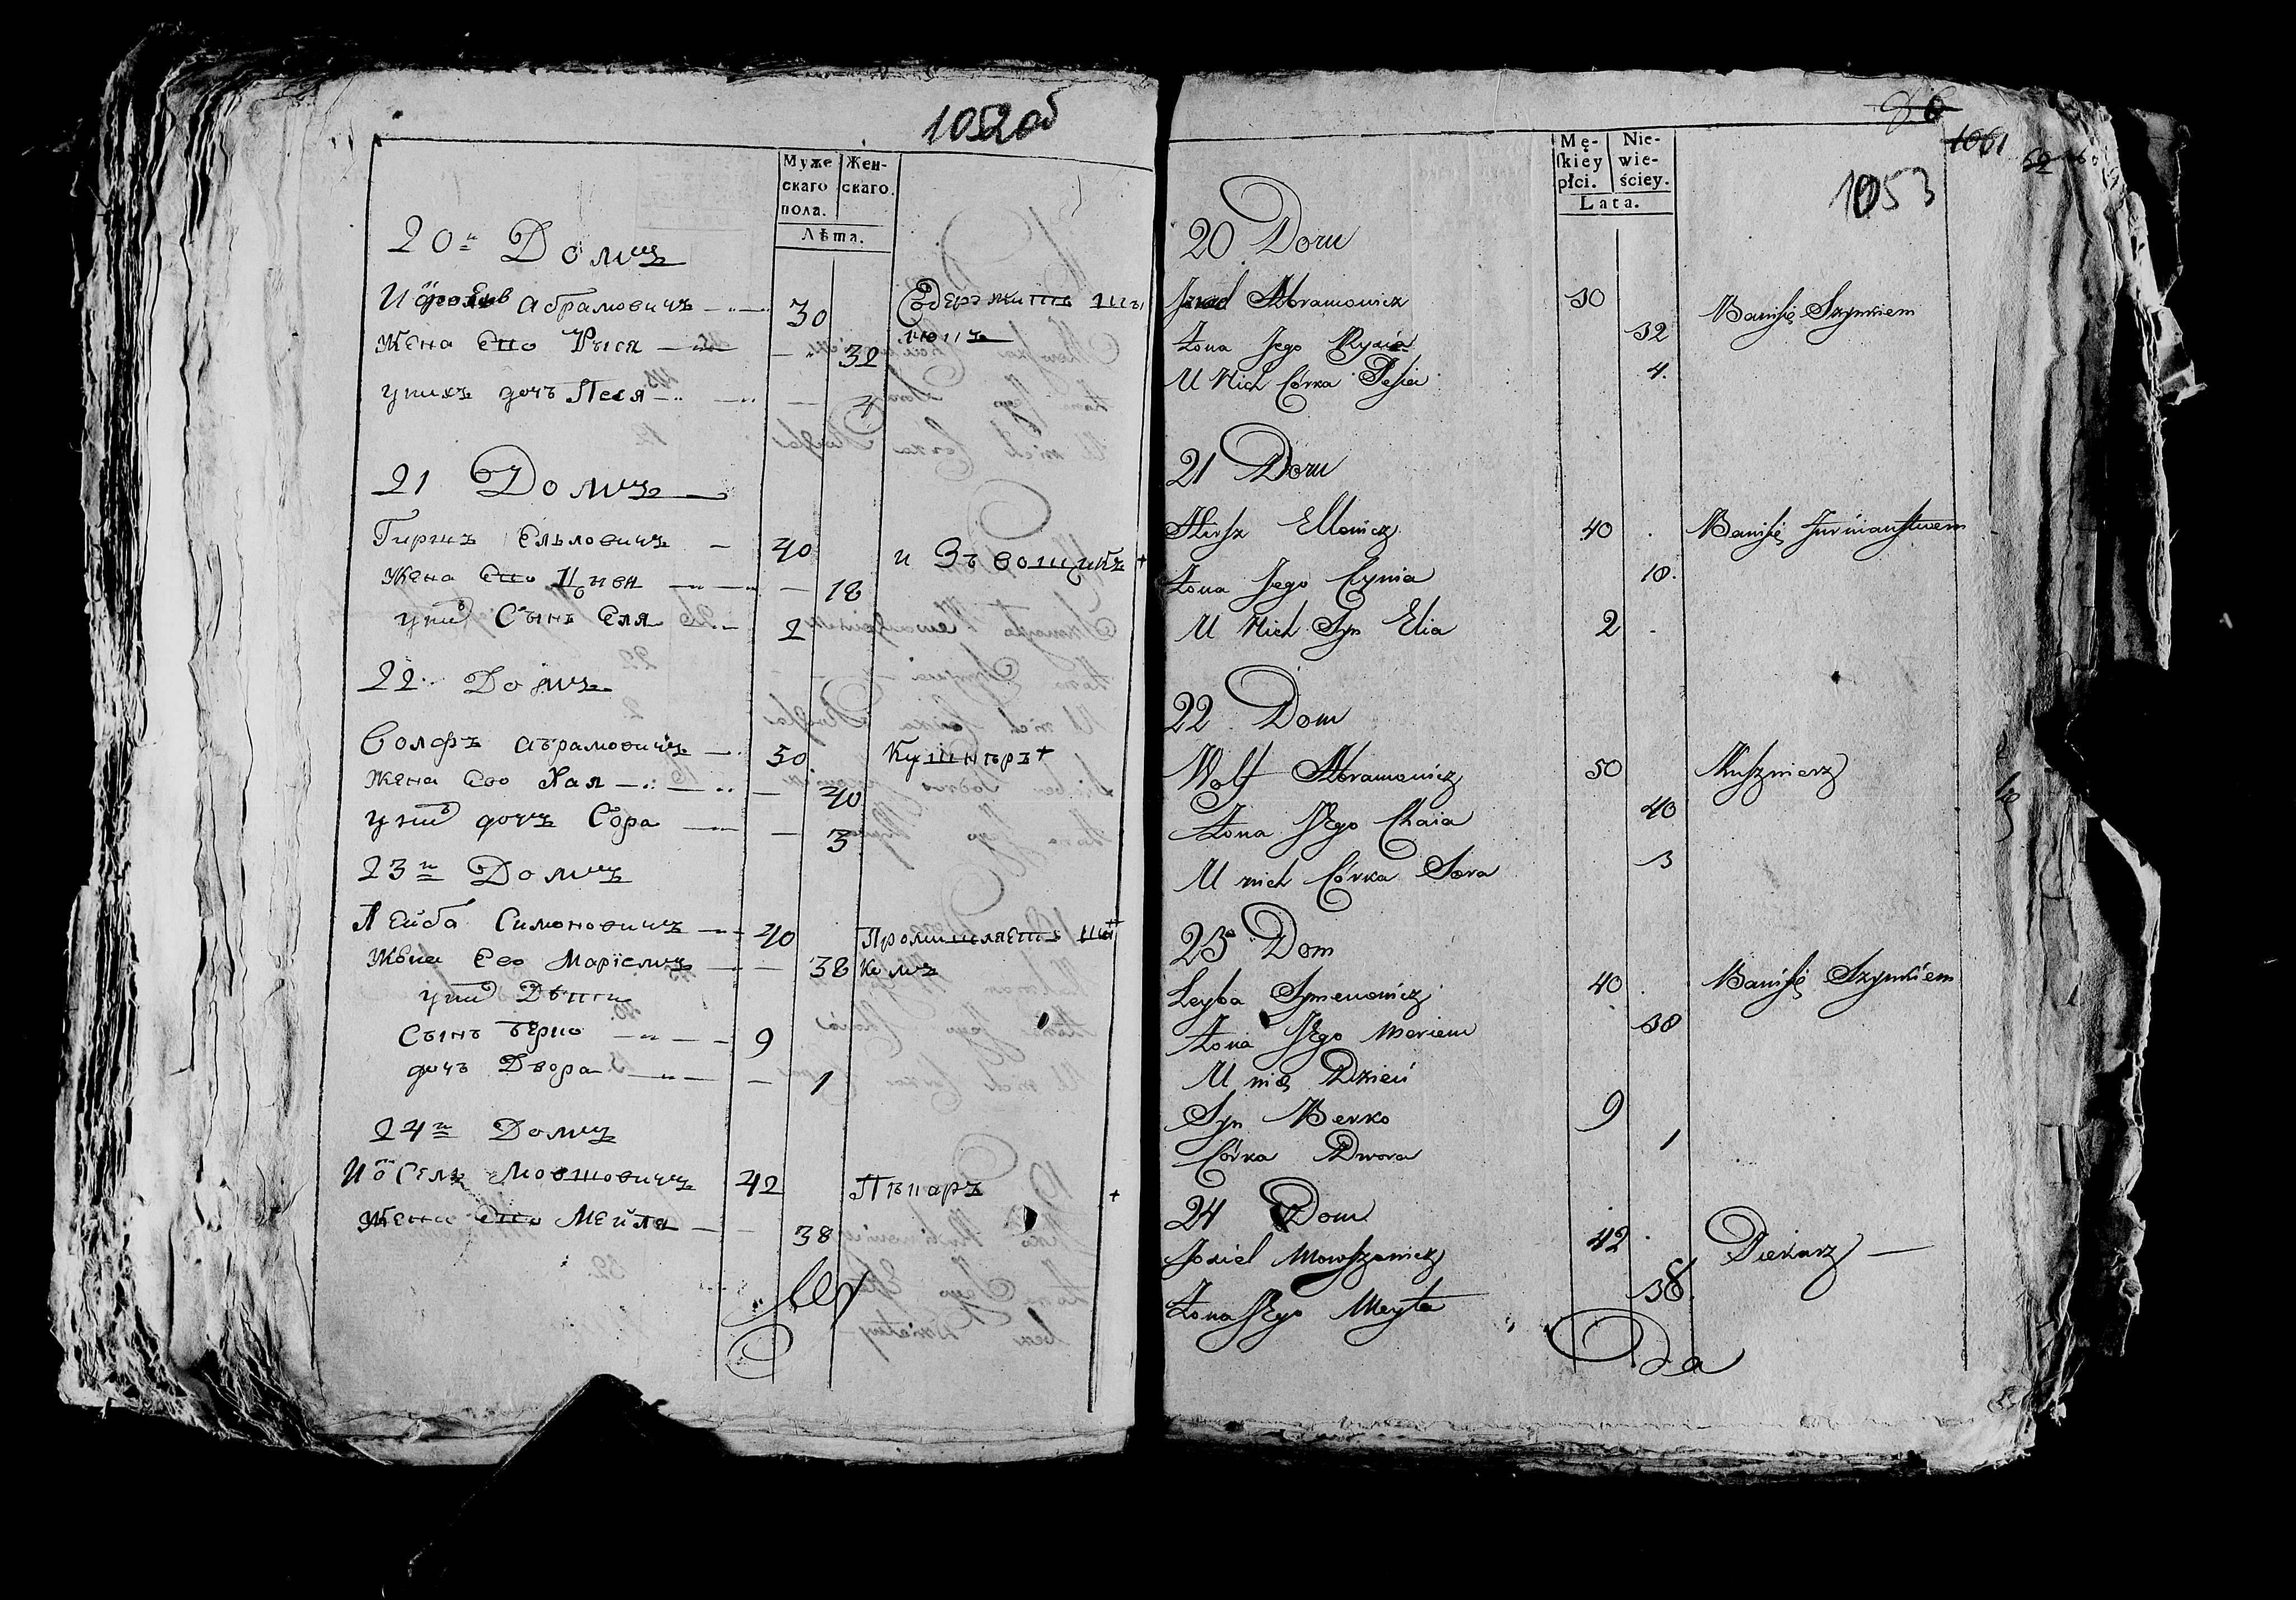 1052об
Муже
скаго
пола.
Жен-
скаго.
Лѣта.
20й Домъ
Абрамовичъ 30 Содержитъ
Жена его Рыся 32
у нихъ дочь Песя 4
21 Домъ
Гиршъ Ельловичъ 40 Извощикъ +
Жена его 18
у них Сынъ Еля 2
22 Домъ
Волфъ Абрамовичъ 50 Кушнѣръ +
Жена его Хая 40
у них дочь Сора 3
23й Домъ
Лейба Симоновичъ 40 Промишляетъ шин
Жена его Маріемъ 38 комъ
у них Дѣти
Сынъ Берко 9
дочь Двора 1
24й Домъ
Иосель Мовшовичъ 42 Пѣкаръ +
Жена его Мейля 38
1061
1053
Mę-
ſkiéy
płci.
Nie-
wie-
ściey.
Lata.
20 Dom
Abramowicz 30 Bawiſię Szynkiem
Żona Jego Rysia 32
U Nich Córka Pesia 4.
21 Dom
Hirsz Ellowicz 40 Bawiſię furmanstwem
Żona Jego Cywia 18.
U Nich Syn Elia 2
22 Dom
Wolf Abramowicz 50 Kuszmierz
Żona Jego Chaia 40
U nich Córka Sora 3
23 Dom
Leyba Symenowicz 40 Bawiſię Szynkiem
Żona Jego Meriem 38
U nich Dzieci
Syn Berko 9
Córka Dwora 1
24 Dom
Josiel Mowszowicz 42 Piekarz
Żona Jego Meyla 38.